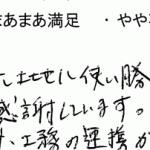 まあまあ満足 ・やや
し土地に使い勝
感謝しています。
工務の連携が